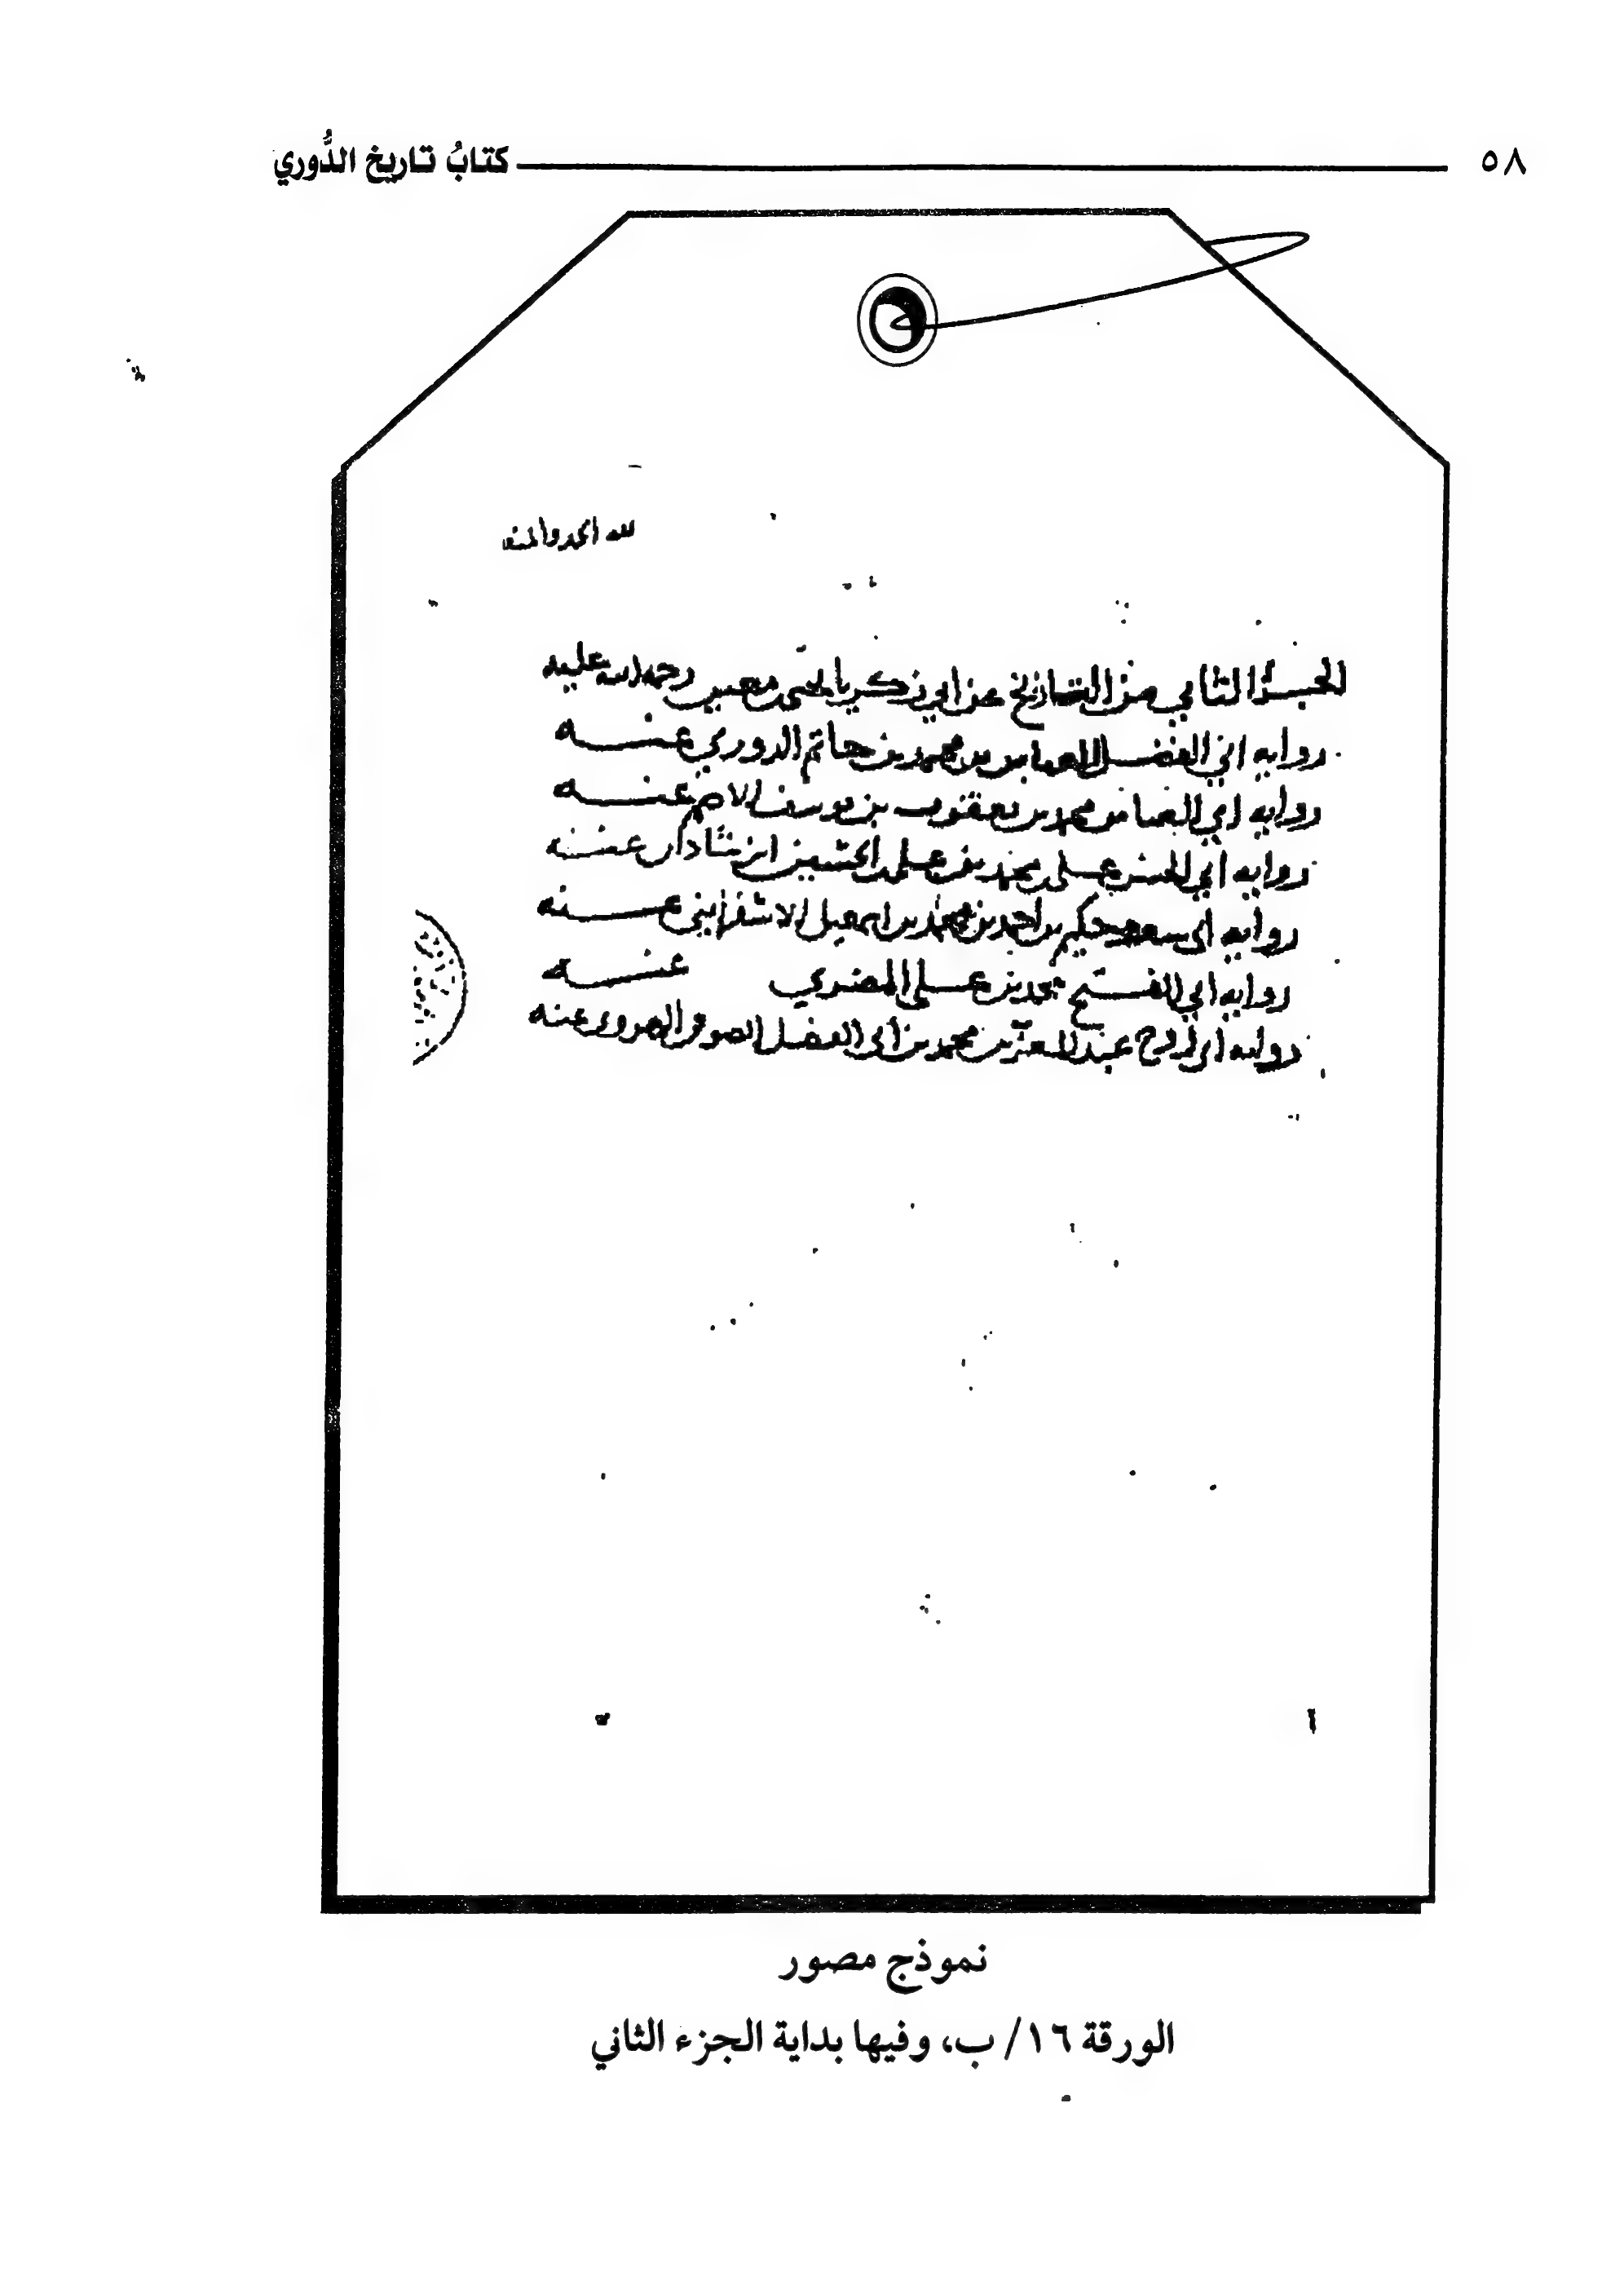 ٥٨ كتابُ تاريخ الدُّوري
لله الحمد والمنه
الجزء الثاني من التاريخ عن ابي زكريا يحيى بن معين رحمه الله عليه
روايه ابي الفضل العباس بن محمد بن حاتم الدوري عنه
روايه ابي العباس محمد بن يعقوب بن يوسف الاصم عنه
روايه ابي الحسن علي بن محمد بن علي بن الحسين ابن شاذان عنه
روايه ابي سعد حكيم بن احمد بن محمد بن اسمعيل الاسفرايني عنه
روايه ابي الفتح محمد بن علي المضري عنه
روايه ابي روح عبد المعز بن محمد بن أبي الفضل الصوفي الهروي عنه
نموذج مصور
الورقة ١٦/ ب، وفيها بداية الجزء الثاني